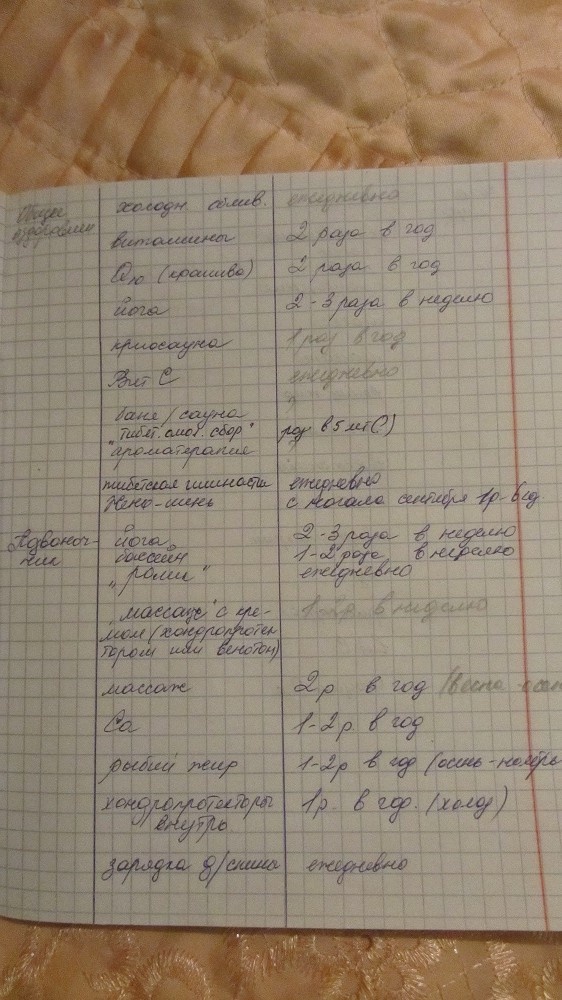 Общее холодн. облив. ежедневно
оздоровлен витамины 2 раза в год
(крапива) 2 раза в год
йога 2-3 раза в неделю
криосауна 1 раз в год
Вит С ежедневно
баня/сауна ?
"тибет. омол. сбор" раз в 5 лет(?)
"ароматерапия"
тибетская гимнастика ежедневно
Жень-шень с начала сентября 1р-в год
Позвоноч- йога 2-3 раза в неделю
ник бассейн 1-2 раза в неделю
"ролик" ежедневно
"массаж" с кре- 1-2р. в неделю
мом (хондропротек-
тором или венотон)
массаж 2р в год (весна-осень
Ca 1-2р в год
рыбий жир 1-2р в год (осень-ноябрь
хондропротекторы 1р. в год. (холод)
внутрь
зарядка д/спины ежедневно